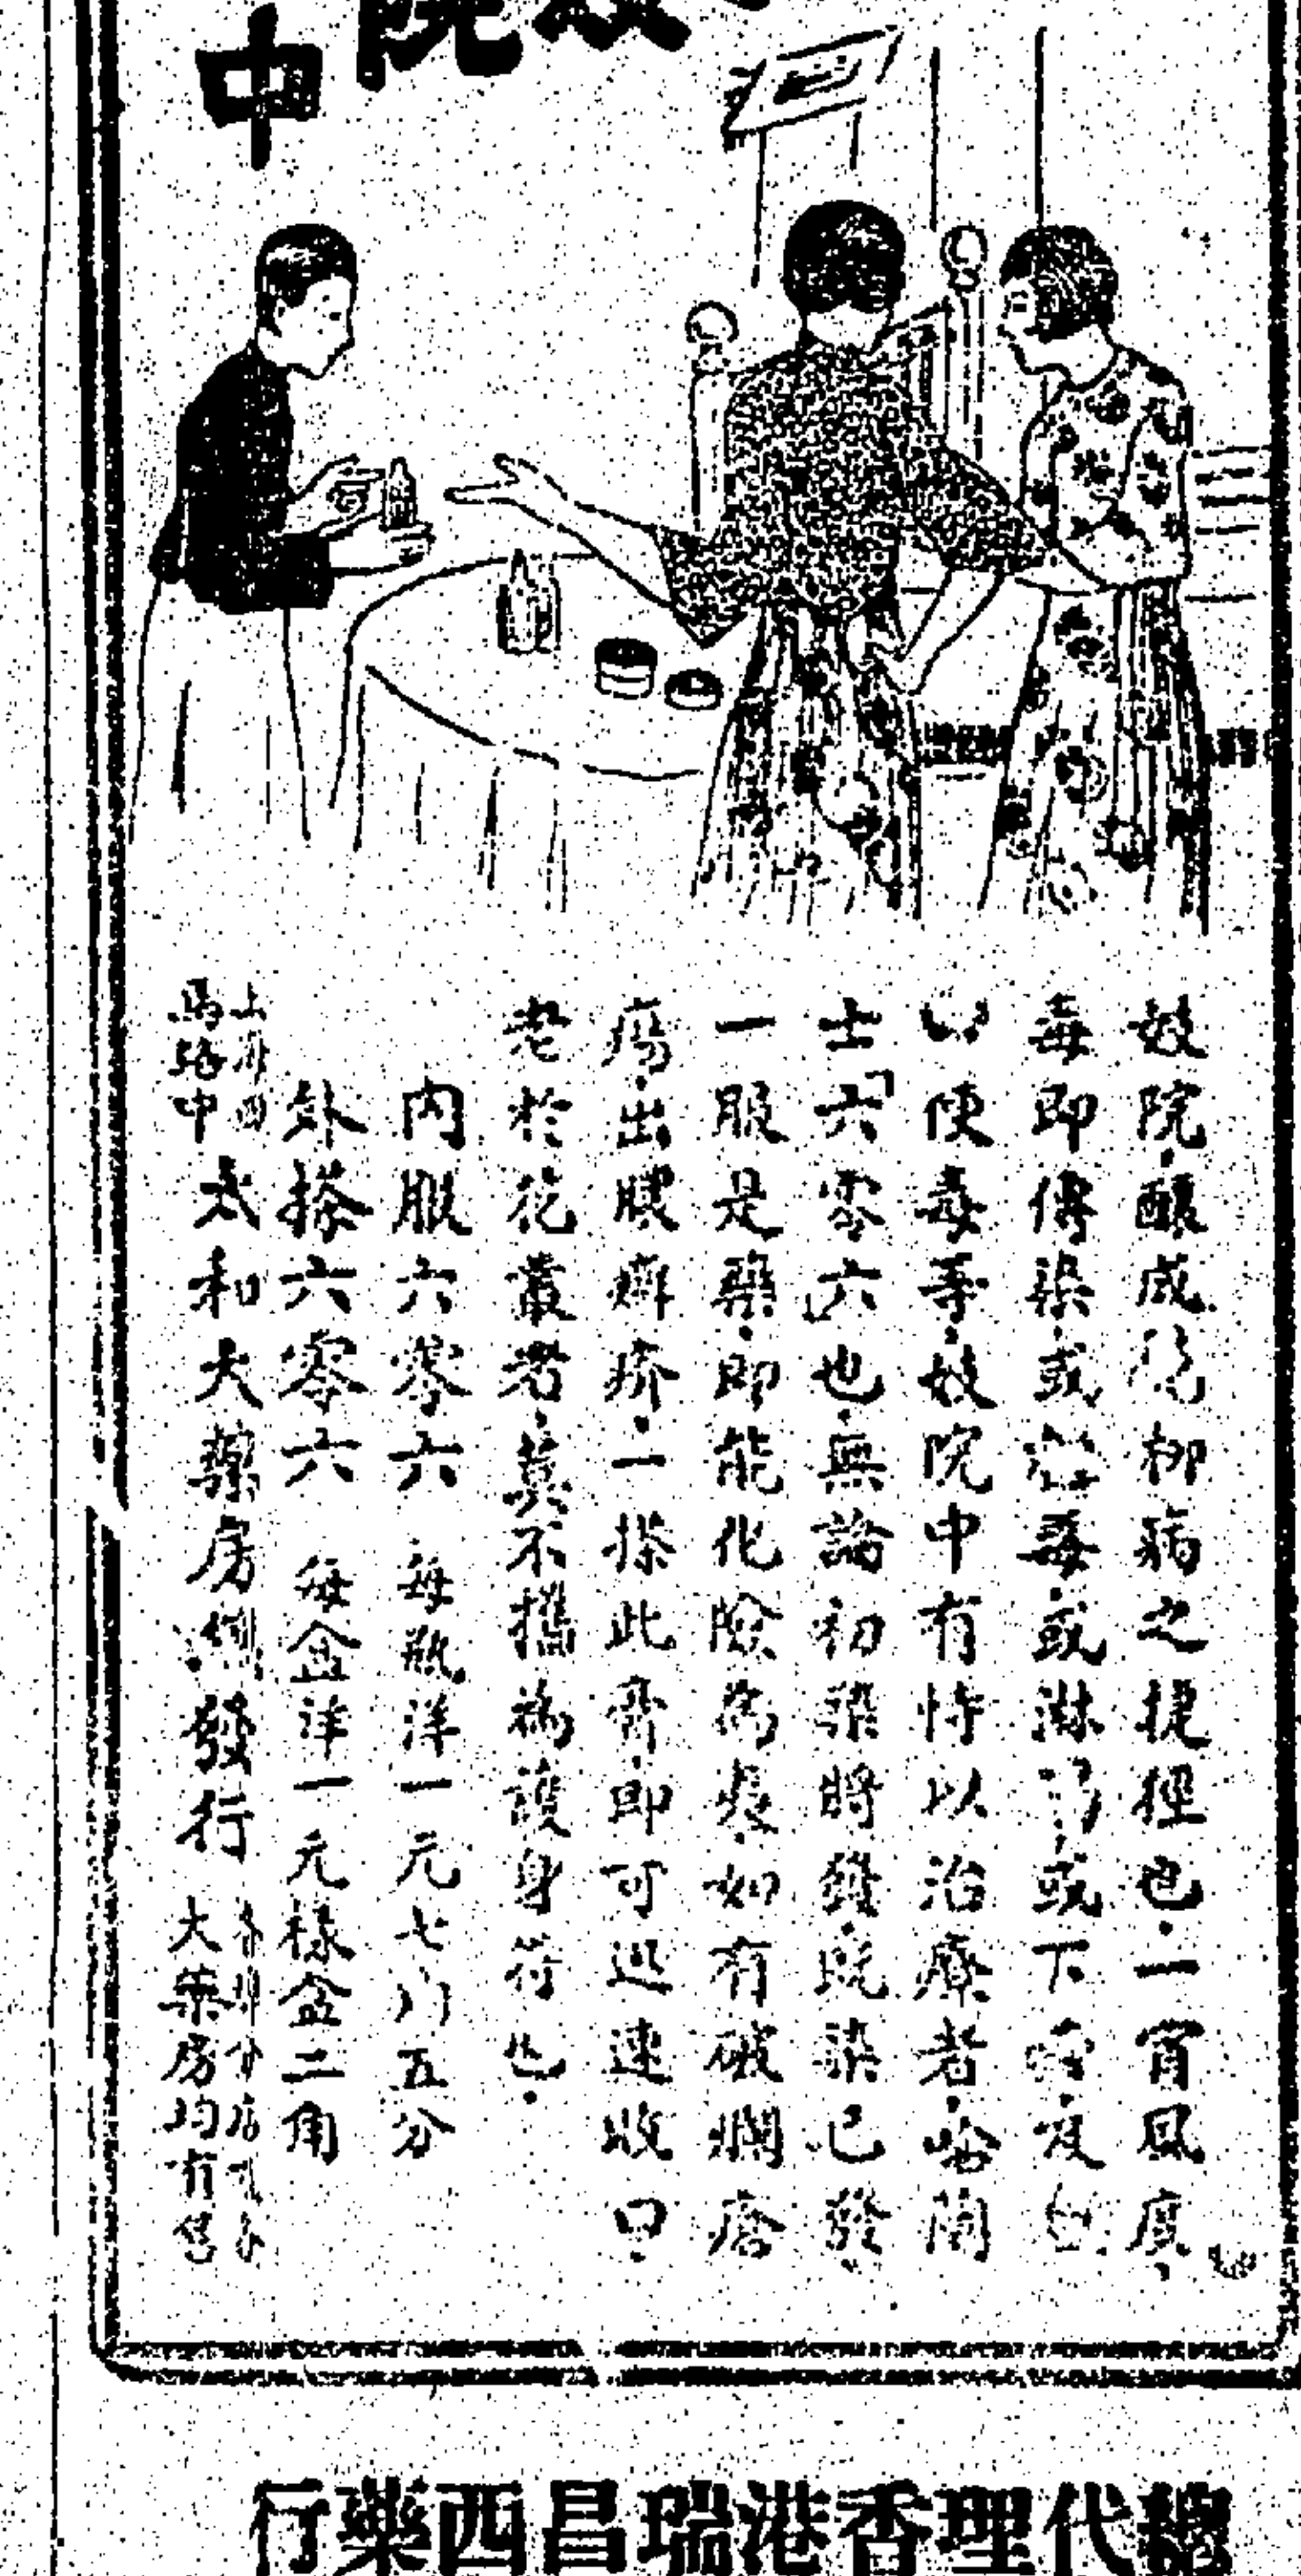 院
中
妓院釀成花柳病之捷徑也一宵風度
毒即傳染或梅毒或淋濁或下疳及白
以使毒等妓院中有恃以治療者啥開
士「六零六」也無論初染將發既染已發
一服是藥即能化險為夷如有破爛瘡
瘍出膿癬疥一搽此膏即可迅速收口
老於花叢者莫不攜為護身符也
內服六零六 每瓶洋一元七八五分
外搽六零六 每盒洋一元樣盒二角
上海四馬路中 太和大藥房 發行 大藥房均有售
總代理香港瑞昌西藥行